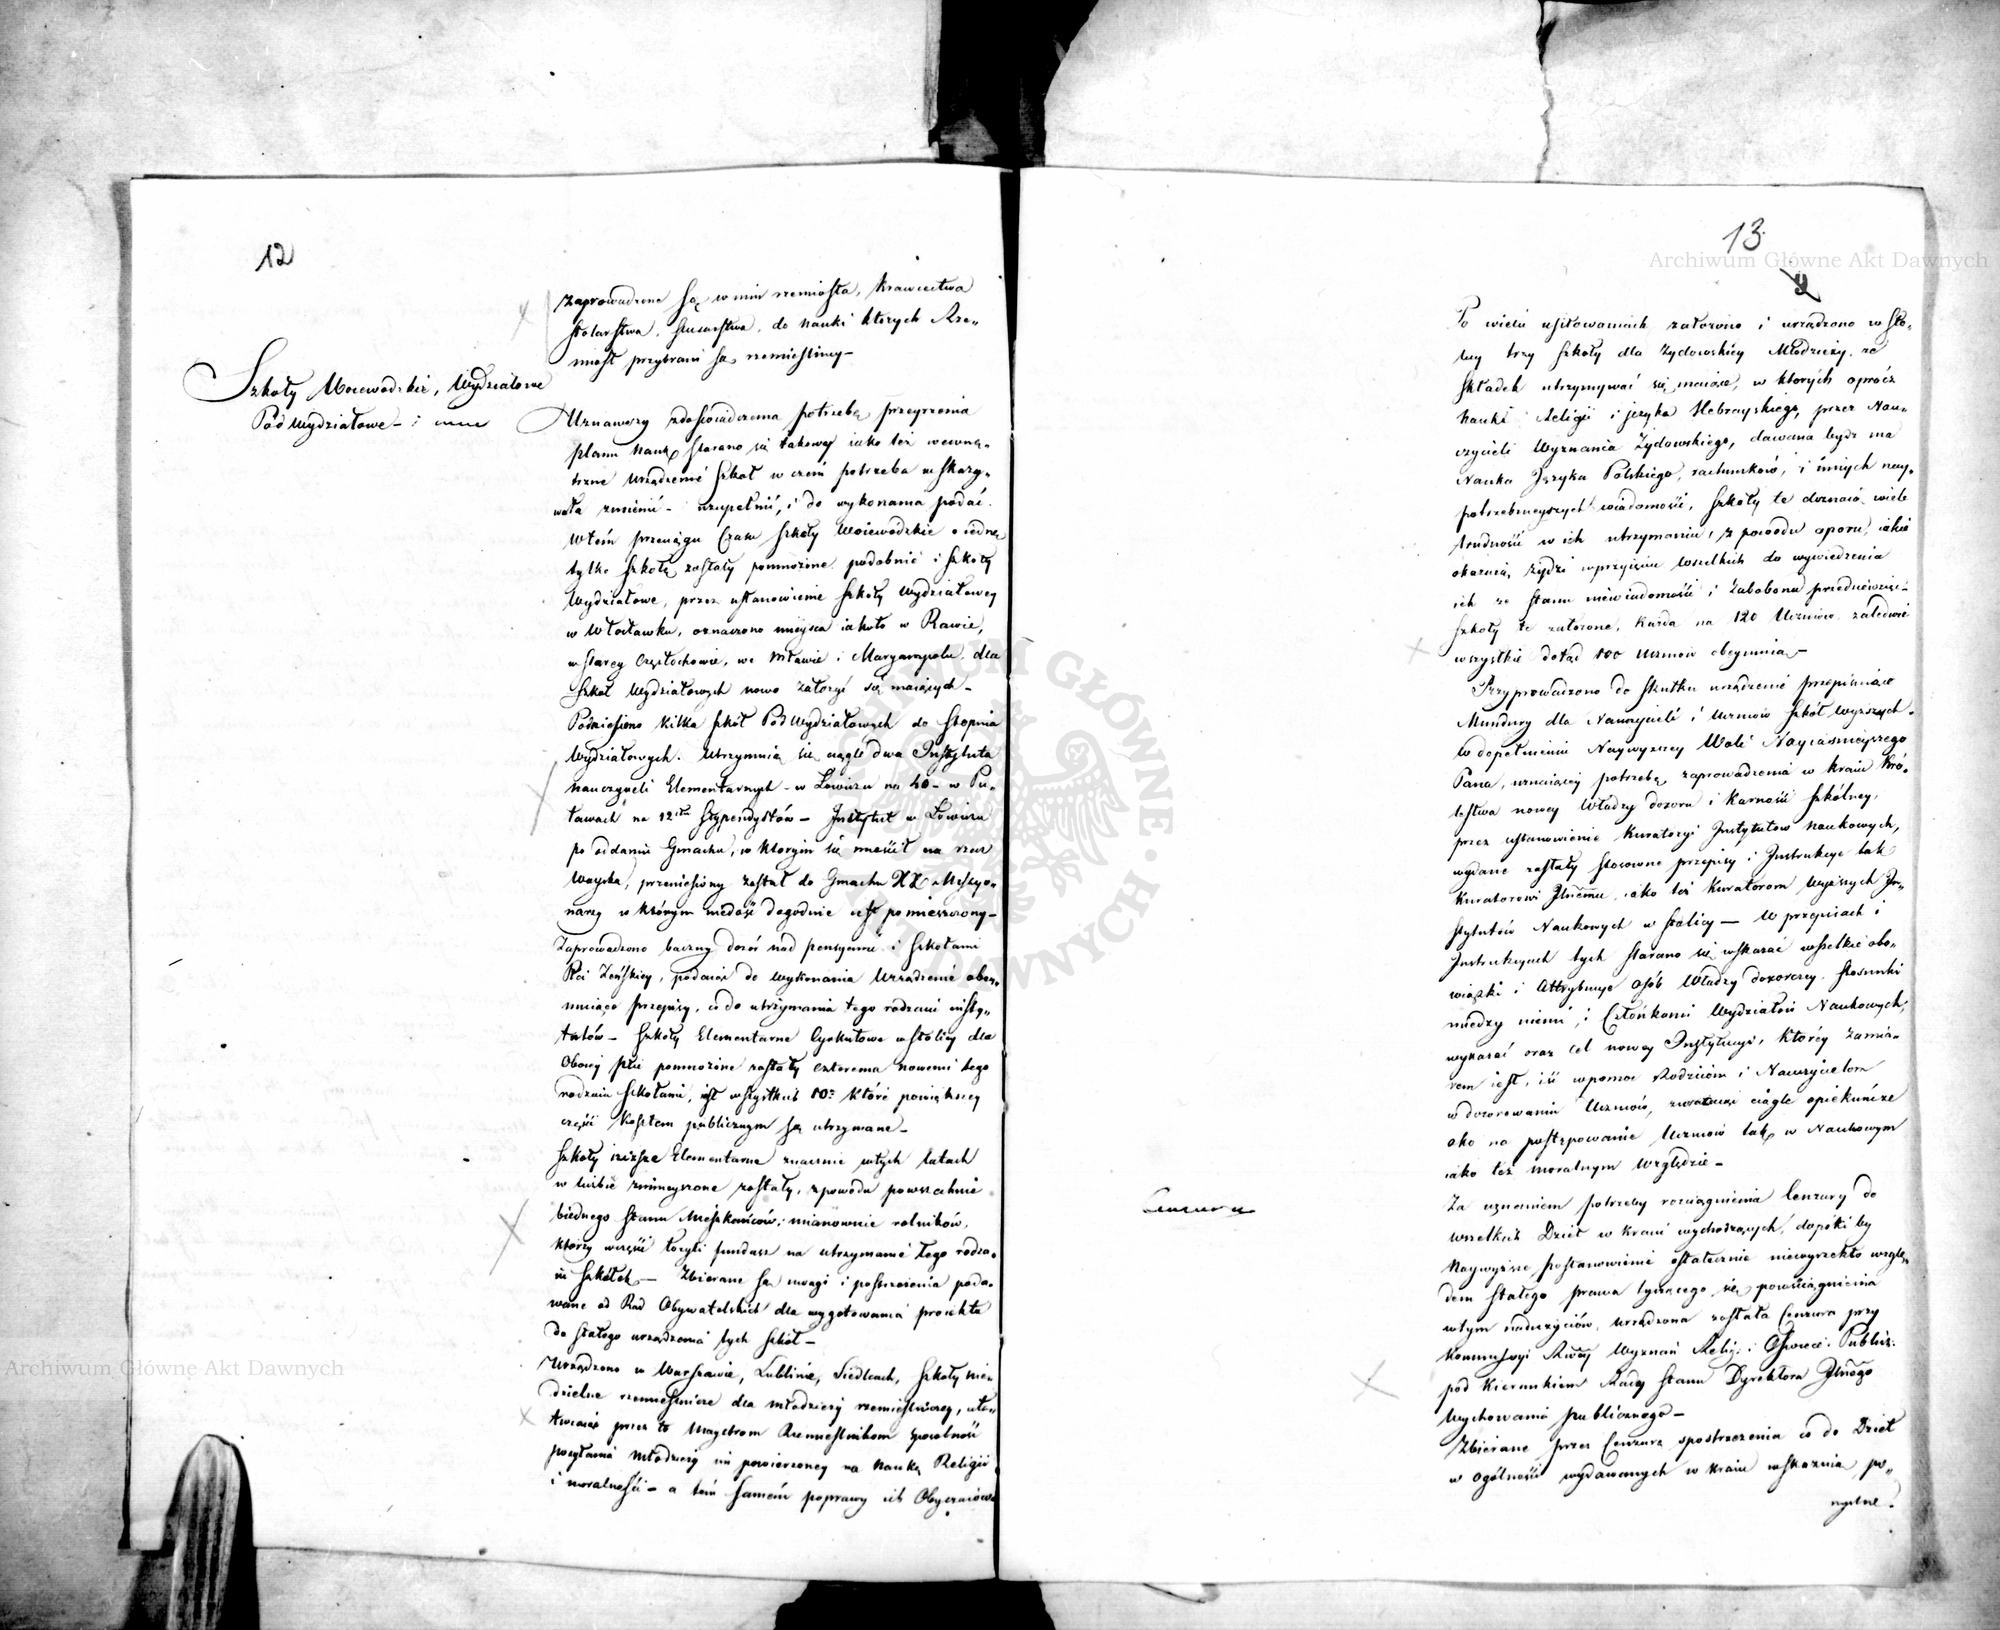 12
zaprowadzone są w nim rzemiosła, Krawiectwa
stolarstwa, slusarstwa, do nauki których Rze„
miosł przybrani są rzemieslnicy –
Szkoły Woiewodzkie, Wydziałowe
Pod Wydziałowe – i inne
Uznawszy z doświadczenia potrzebę przeyrzenia
planu nauk, starano się takowy iako też wewnę„
trzne urządzenie Szkół w czem potrzeba wskazy„
wała zmienić – uzupełnić, i do wykonania podać.
W tem przeciągu Czasu Szkoły Woiewódzkie o iedną
tylko Szkołę zostały pomnożone, podobnie i Szkoły
Wydziałowe, przez ustanowienie Szkoły Wydziałowey
w Włocławku, oznaczono mieysca iakoto w Rawie,
w Starey Częstochowie, we Mławie i Maryampolu, dla
Szkół Wydziałowych nowo założyć się maiących –
Podniesiono kilka Szkół PodWydziałowych do Stopnia
Wydziałowych. Utrzymuią się ciągle dwa Instytuta
nauczycieli Elementarnych – w Łowiczu na 40 – w Pu„
ławach na 12stu Stypendystów – Instytut w Łowiczu
po oddaniu Gmachu, w którym się mieścił na rzecz
Woyska, przeniesiony został do Gmachu XX Missyo„
narzy w którym niedość dogodnie iest pomieszczony –
Zaprowadzono baczny dozór nad pensyami i Szkołami
Płci Żeńskiey, podaiąc do wykonania Urządzenie obey„
muiące przepisy, co do utrzymania tego rodzaiu insty„
tutów – Szkoły Elementarne Cyrkułowe w stolicy dla
Oboiey płci pomnożone zostały czterema nowemi tego
rodzaiu Szkołami, iest wszystkich 10 które powiększey
części Kosztem publicznym są utrzymane –
Szkoły niższe Elementarne znacznie w tych latach
w liczbie zmnieyszone zostały, z powodu powszechnie
biednego stanu Mieszkańców, mianowicie rolników,
którzy wczęści łożyli fundusz na utrzymanie tego rodza„
iu Szkółek – Zbierane są uwagi i postrzeżenia poda„
wane od Rad Obywatelskich dla wygotowania proiektu
do stałego urządzenia tych Szkół –
Urządzono w Warszawie, Lublinie, Siedlcach, Szkoły nie„
dzielne rzemieslnicze dla młodzieży rzemieslniczey, uła„
twiaiąc przez to Maystrom Rzemieslnikom sposobność
posyłania młodzieży im powierzoney na naukę Religii
i moralności – a tem samem poprawy ich Obyczaiów
13.
9
Po wielu usiłowaniach założono i urządzono w Sto„
licy trzy Szkoły dla Żydowskiey Młodzieży, ze
Składek utrzymywać się maiące, w których oprócz
nauki Religii i języka Hebrayskiego, przez Nau„
czycieli Wyznania Żydowskiego, dawana bydź ma
Nauka Języka Polskiego, rachunków, i innych nay„
potrzebnieyszych wiadomości, Szkoły te doznaią wiele
trudności w ich utrzymaniu, z powodu oporu, iakie
okazuią Żydzi w przyięciu wszelkich do wywiedzenia
ich ze stanu niewiadomości i Zabobonu przedsięwzięć –
Szkoły te założone, każda na 120 Uczniów, zaledwie
wszystkie dotąd 100 Uczniów obeymuią –
Przyprowadzono do skutku urządzenie przepisuiące
Mundury dla Nauczycieli i Uczniów Szkół Wyższych –
W dopełnieniu Naywyższey Woli Nayiaśnieyszego
Pana, uznaiącey potrzebę zaprowadzenia w kraiu Kró„
lestwa nowey Władzy dozoru i Karności Szkólney,
przez ustanowienie Kuratoryi Instytutów Naukowych,
wydane zostały stosowne przepisy i Instrukcye tak
Kuratorowi Jlnemu, iako też Kuratorom Wyższych In„
stytutów Naukowych w stolicy – W przepisach i
Instrukcyach tych starano się wskazać wszelkie obo„
wiązki i Attrybucye osób Władzy dozorczey, stosunki
między niemi, i Członkami Wydziałów Naukowych,
wykazać oraz cel nowey Instytucyi, którey zamia„
rem iest, iść w pomoc Rodzicom i Nauczycielom
w dozorowaniu Uczniów, zwracać ciągle opiekuńcze
oko na postępowanie Uczniów tak w Naukowym
iako też moralnym względzie –
Cenzura
Za uznaniem potrzeby rozciągnienia Cenzury do
wszelkich Dzieł w kraiu wychodzących, dopóki by
Naywyższe postanowienie ostatecznie niewyrzekło wzglę„
dem stałego prawa tyczącego się powściągnienia
w tym nadużyciów, urządzona została Cenzura przy
Kommissyi Rwey Wyznań Relig: i Oświece: Publicz:
pod kierunkiem Radcy stanu Dyrektora Jlnego
Wychowania publicznego –
Zbierane przez Cenzurę spostrzeżenia co do Dzieł
w ogólności wydawanych w kraiu wskazuią, po„
Archiwum Główne Akt Dawnych
Archiwum Główne Akt Dawnych